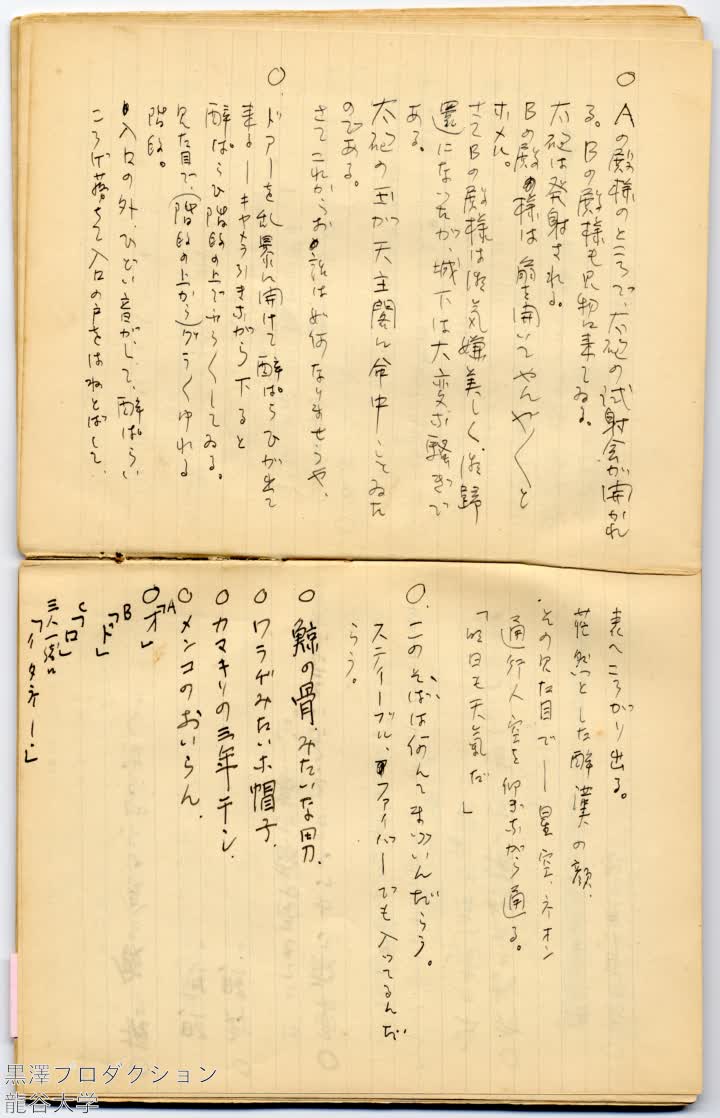 ○Aの殿様のところで、大砲の試射会が開かれ
る。Bの殿様も見物に来てゐる。
大砲は発射される。
Bの殿様は扇を開いてやんや〱と
ホメル。
さてBの殿様は御気嫌美しく御歸
還になったが、城下は大変な騒ぎで
ある。
大砲の玉が天主閣に命中してゐた
のである。
さてこれからお話は如何なりませうや、
○.ドアーを乱暴に開けて酔ぱらひが出て
来る―キャメラ引きながら下ると
酔ぱらひ階段の上でふら〱してゐる。
見た目で、(階段の上から)グラ〱ゆれる
階段。
入口の外、ひどい音がして、酔ぱらい
ころげ落ちて入口の戸をはねとばして、
表へころがり出る。
茫然とした酔漢の顔、
その見た目で―星空、ネオン
通行人空を仰ぎながら通る。
「明日も天氣だ」
○.このそばは何んてまづいんだらう。
スティーブル、ファイバーでも入ってるんだ
らう。
○鯨の骨みたいな男.
○ワラヂみたいな帽子.
○カマキリの三年干シ.
○メンコのおいらん.
○A「オ」
B「ド」
C「ロ」
三人一緒に
「イタネー.」
黒澤プロダクション
龍谷大学